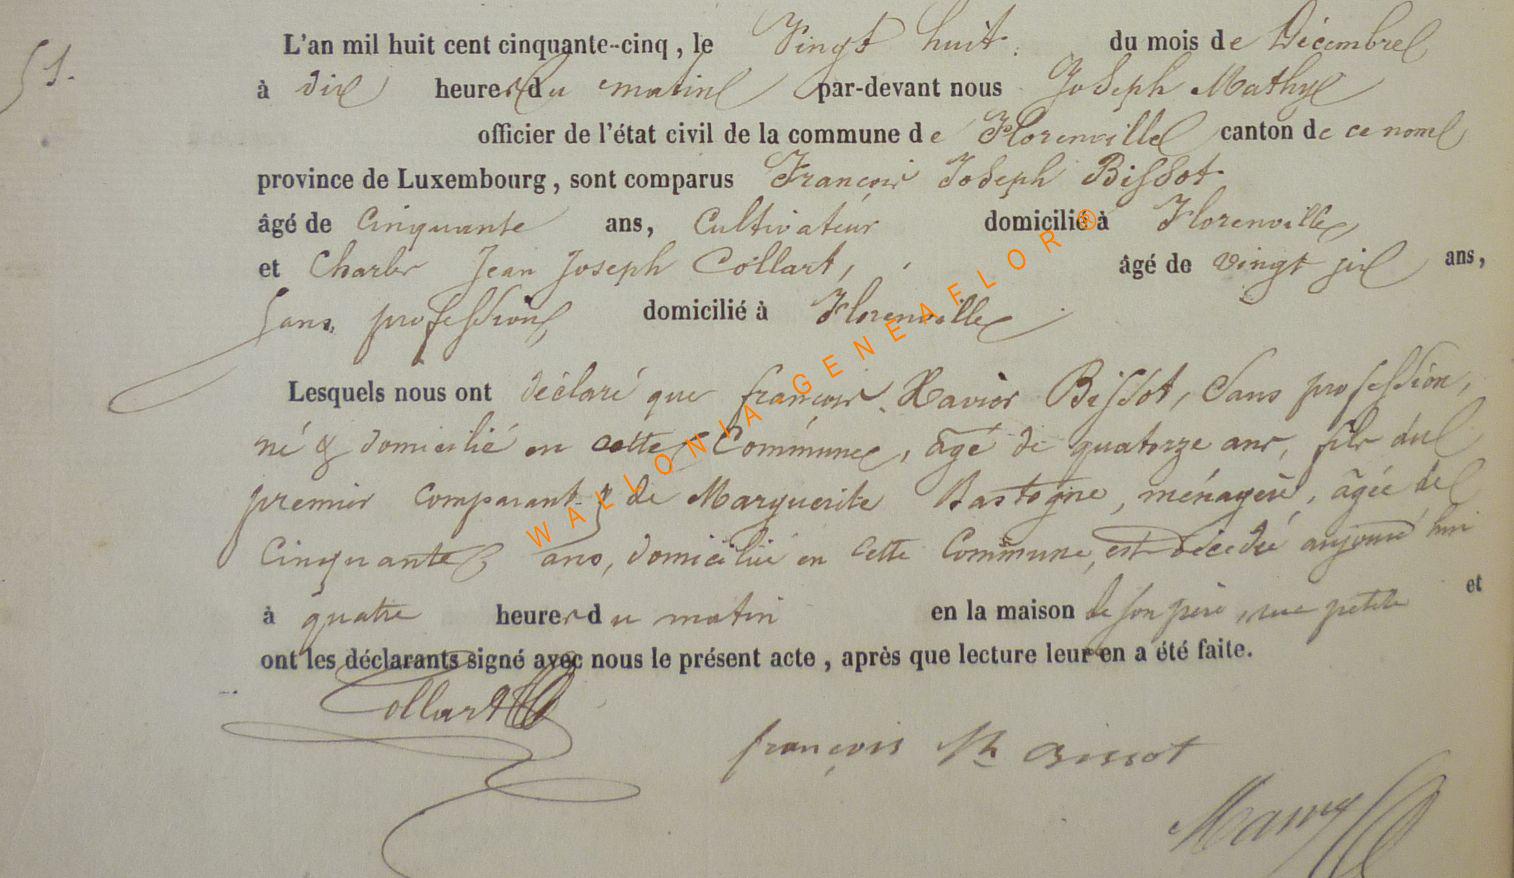 51.
L'an mil huit cent cinquante-cinq, le Vingt huit du mois de Décembre
à dix heures du matin par-devant nous Joseph Mathy
officier de l'état civil de la commune de Florenville canton de ce nom
province de Luxembourg, sont comparus François Joseph Bissot
âgé de Cinquante ans, Cultivateur domicilié à Florenville
et Charles Jean Joseph Collart, âgé de vingt six ans,
Sans profession domicilié à Florenville
Lesquels nous ont déclaré que françois Xavier Bissot, Sans profession,
né & domicilié en cette Commune, âgé de quatorze ans, fils du
premier comparant & de Marguerite Bastogne, ménagère, âgée de
Cinquante ans, domiciliée en cette Commune, est décédé aujourd'hui
à quatre heures du matin en la maison de son père, rue petite et
ont les déclarants signé avec nous le présent acte, après que lecture leur en a été faite.
Collart
françois Jh Bissot
WALLONIA GENEAFLOR ®